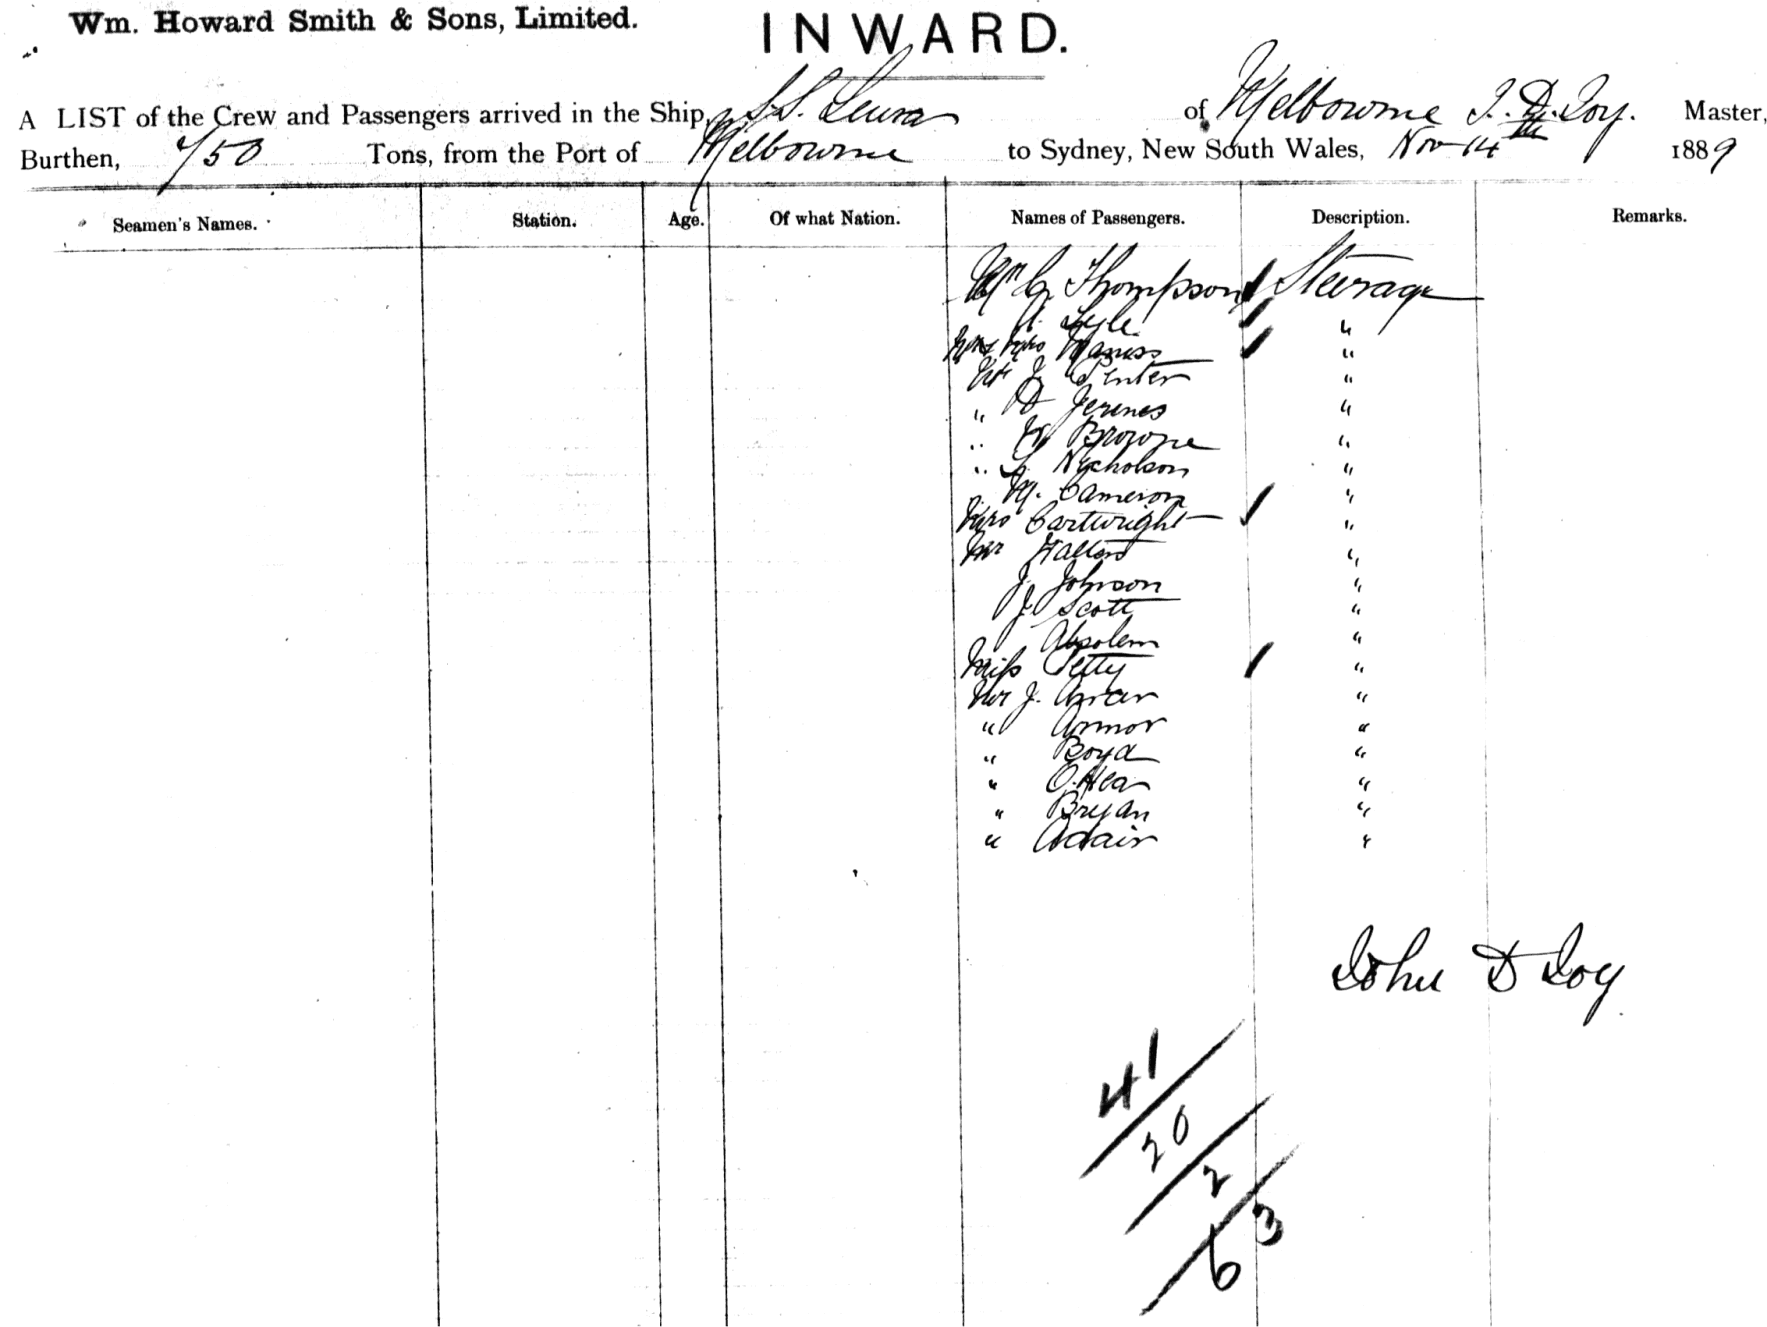 Wm. Howard Smith & Sons, Limited.
INWARD.
A LIST of the Crew and Passengers arrived in the Ship, S.S. Leura of Melbourne J. D. Joy. Master,
Burthen, 750 Tons, from the Port of Melbourne to Sydney, New South Wales, Nov 14th 1889
Seamen's Names. Station. Age. Of what Nation. Names of Passengers. Description. Remarks.
Thompson Steerage
Lyle "
Mrs "
Mr J. "
" D "
" Browne "
" Nicholson "
M. Cameron "
Mrs Cartwright "
Mr "
J. Johnson "
J. Scott "
Absolem "
Miss Petty "
Mr J. "
" Armor "
" Boyd "
" O.Hea "
" Bryan "
" Adair "
John D Joy
41
20
2
63